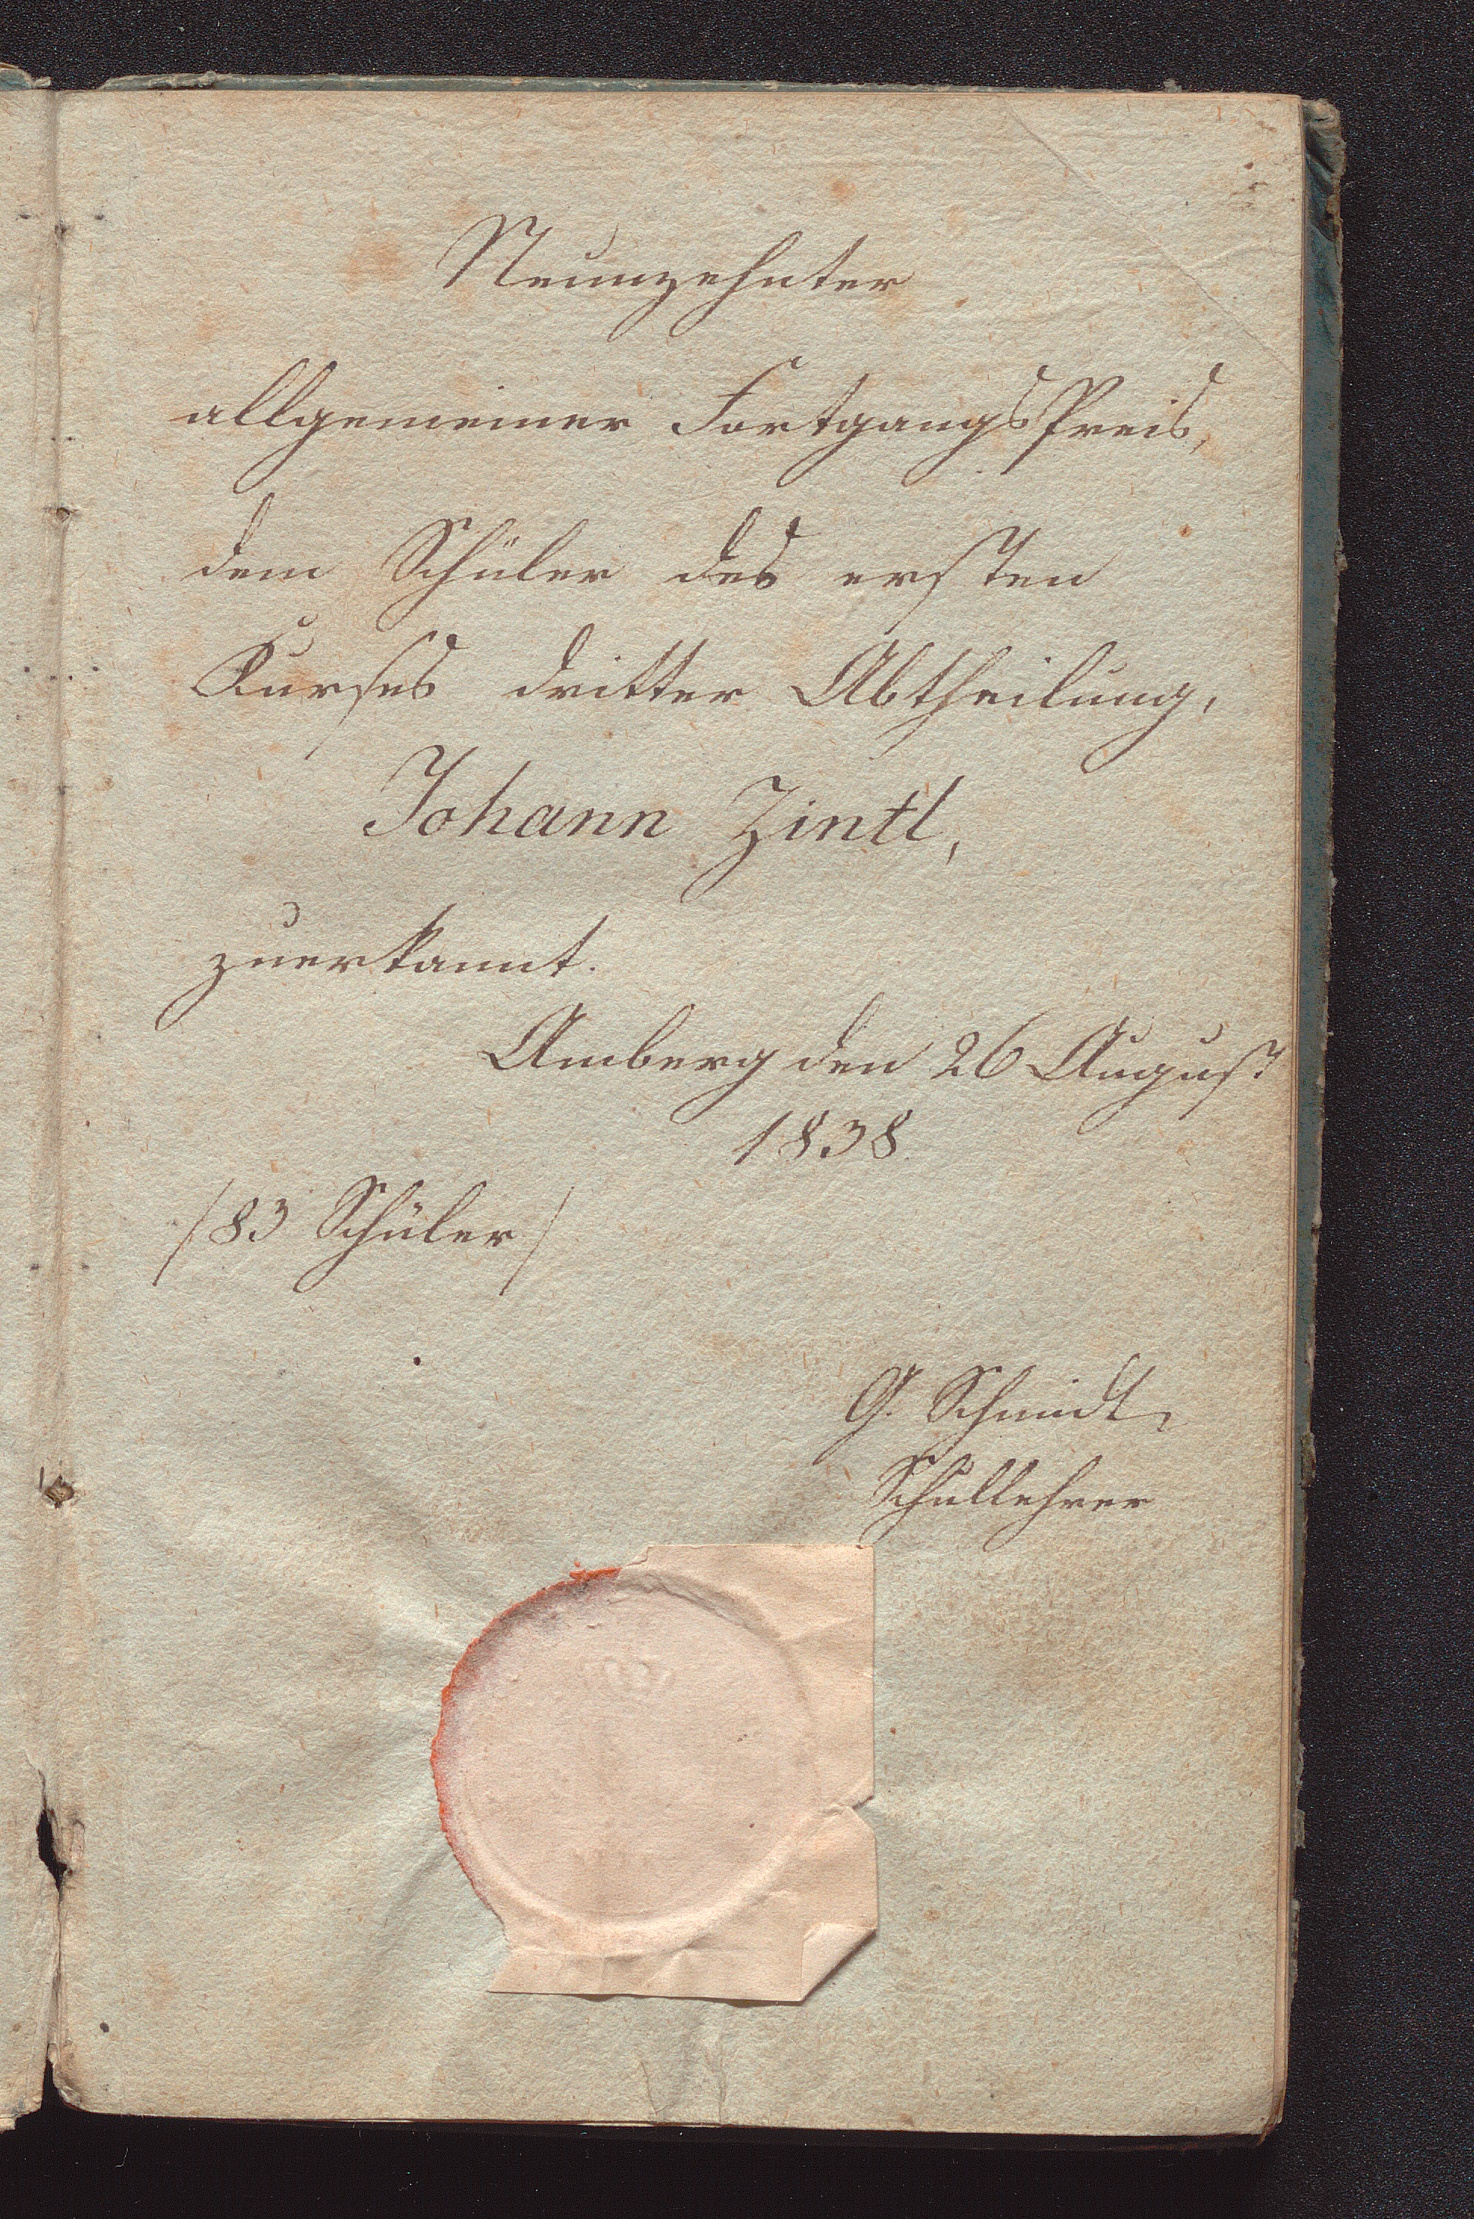 Neunzehnter
allgemeiner FortgangsPreis,
dem Schüler des ersten
Kurses dritter Abtheilung,
Johann Zintl,
zuerkannt.
Amberg den 26 August
1838.
/83 Schüler/
G. Schmidt,
Schullehrer